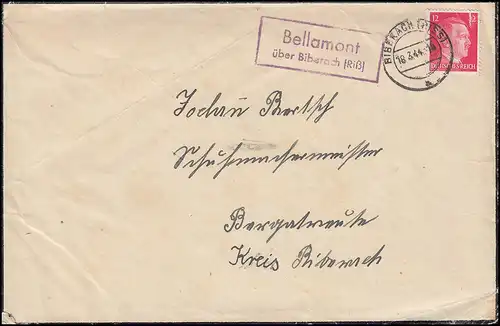 Bellamont
über Biberach (Riß)
BIBERACH (RISS)
18.3.44
12 12
DEUTSCHES REICH
Bertsch
Schuhmachermeister
Bergatreute
Kreis Biberach